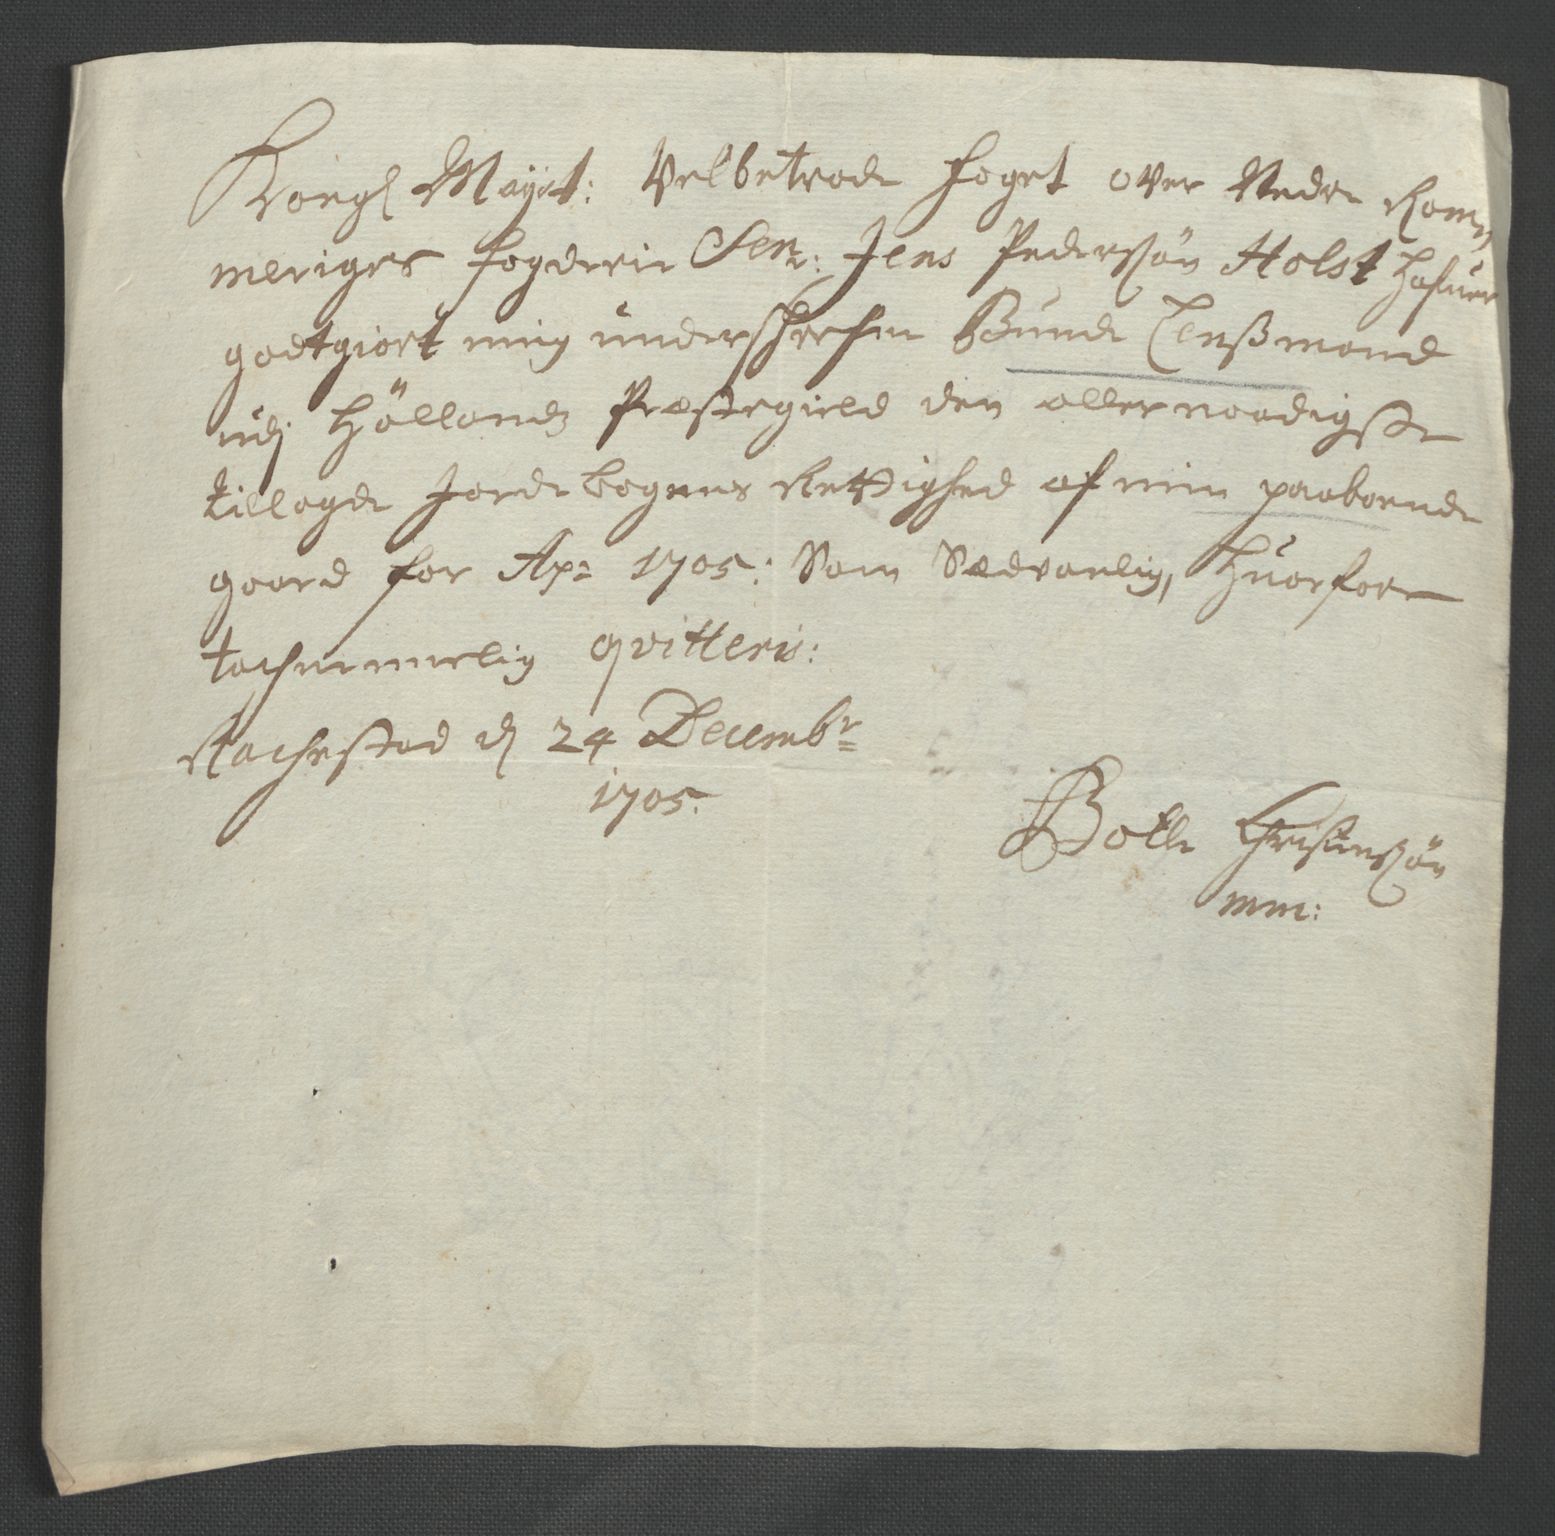 Kongl Mayst: Velbetrode foget over Nedre Rom-
meriges fogderie Senr: Jens Pederssøn Holst hafuer
godtgiort mig underschrefne Bunde Lenßmand
udj Höllands Præstegield den allernaadigste
tillagde Jordebogens Rettighed af min paaboende
gaard for Ao: 1705: Som Sædvanlig, Huorfore
tachnemmelig qvitteris:
Rachestad dj 24 Decembr
1705:
Botle Christenssøn
mm: